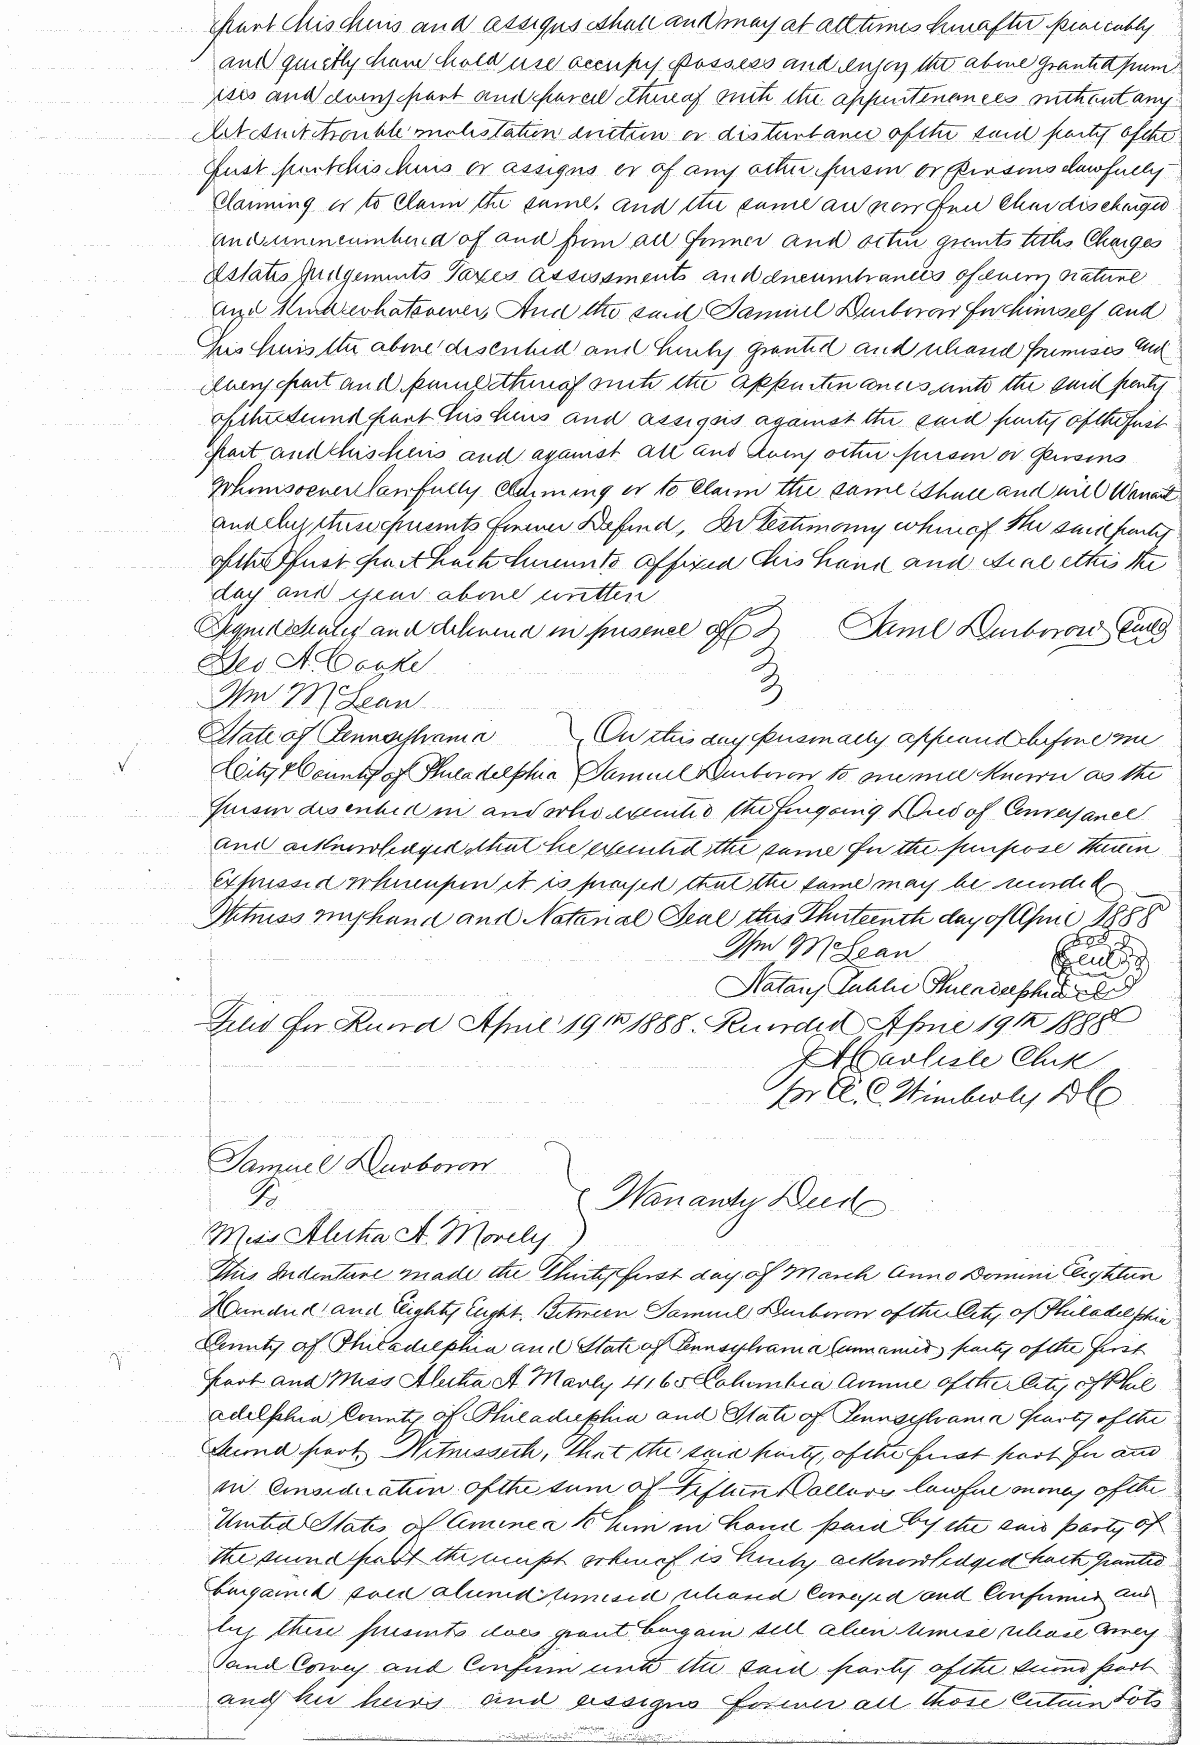 part his heirs and assigns shall and may at all times hereafter peaceably
and quietly have hold use occupy possess and enjoy the above granted prem
ises and every part and parcel thereof with the appurtenances without any
let suit trouble molestation eviction or disturbance of the said party of the
first part his heirs or assigns or of any other person or persons lawfully
Claiming or to Claim the same. and the same are now free Clear discharged
and unencumbered of and from all former and other grants titles Charges
Estates Judgements Taxes assessments and encumbrances of every nature
and Kind whatsoever, And the said Samuel Durborow for himself and
his heirs the above described and hereby granted and released premises and
every part and parcel thereof with the appurtenances unto the said party
of the second part his heirs and assigns against the said party of the first
part and his heirs and against all and every other person or persons
Whomsoever lawfully Claiming or to Claim the same Shall and will Warrant
and by these presents forever Defend, In Testimony whereof the said party
of the first part hath hereunto affixed his hand and seal this the
day and year above written
Signed sealed and delivered in presence of Saml Durborow Seal
Geo A. Cooke
Wm McLean
State of Pennsylvania On this day personally appeared before me
City & County of Philadelphia Samuel Durborow to me well Known as the
person described in and who executed the foregoing Deed of Conveyance
and acknowledged that he executed the same for the purpose therein
Expressed whereupon it is prayed that the same may be recorded
Witness my hand and Notarial Seal this Thirteenth day of April 1888
Wm McLean Seal
Notary Public Philadelphia
Filed for Record April 19th 1888. Recorded April 19th 1888
J A Carlisle Clerk
pr A. C. Wimberly DC
Samuel Durborow
To
Warranty Deed
Miss Aletha A. Morely
This Indenture made the Thirty first day of March Anno Domini Eighteen
Hundred and Eighty Eight. Between Samuel Durborow of the City of Philadelphia
County of Philadelphia and State of Pennsylvania (unmarried) party of the first
part and Miss Aletha A Marly 4165 Columbia Avenue of the City of Phil
adelphia County of Philadelphia and State of Pennsylvania party of the
second part, Witnesseth, That the said party, of the first part for and
in Consideration of the sum of Fifteen Dollars lawful money of the
United States of America to him in hand paid by the said party of
the second part the receipt whereof is hereby acknowledged hath granted
bargained sold aliened remised released Conveyed and Confirmed and
by these presents does grant bargain sell alien remise release Convey
and Convey and Confirm unto the said party of the second part
and her heirs and assigns forever all those Certain Lots